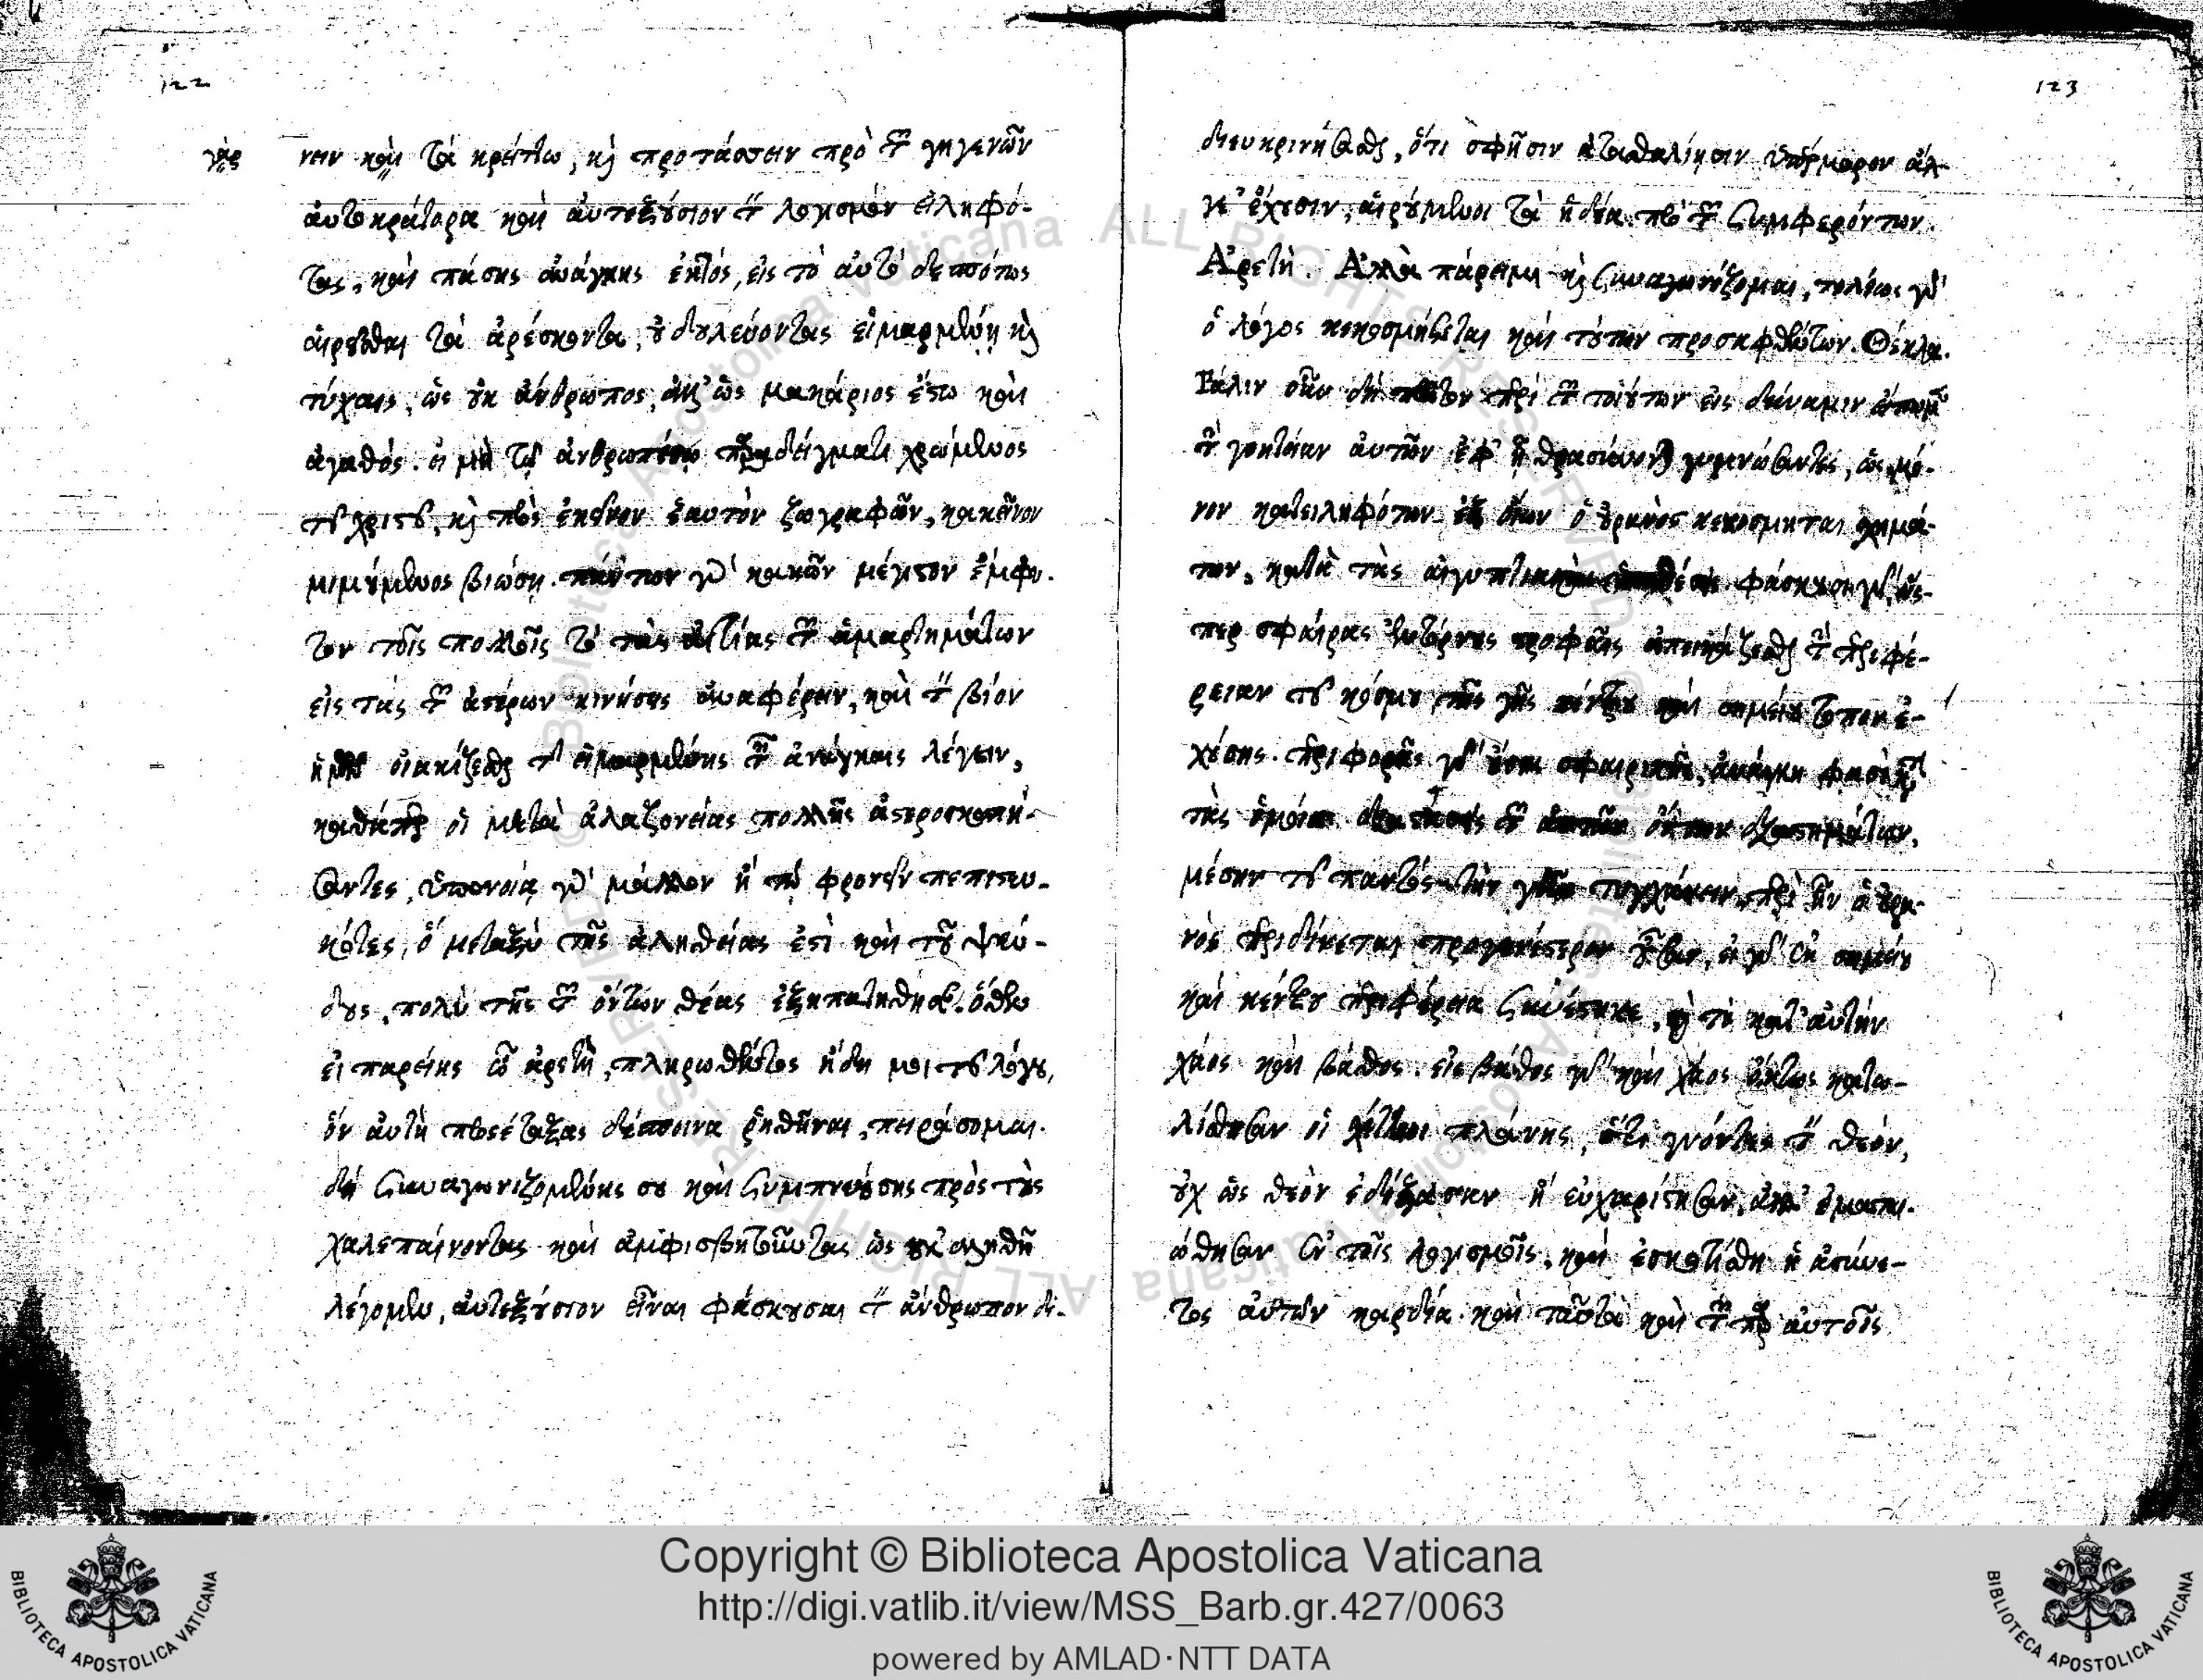 122
γὰρ
νειν καὶ τὰ κρείττω, κὶ προτάσσειν πρὸ τῶν γηγενῶν
αὐτοκράτορα καὶ αὐτεξούσιον τὸν λογισμὸν εἰληφό-
τας, καὶ πάσης ἀνάγκης ἐκτὸς, εἰς τὸ αὐτο δεσπότως
αἱρεῖσθαι τὰ ἀρέσκοντα, οὐ δουλεύοντας εἱμαρμένῃ κὶ
τύχαις, ὡς οὐκ ἄνθρωπος, ἀλλ' ὡς μακάριος ἔστω καὶ
ἀγαθός. εἰ μὴ τῷ ἀνθρωπείῳ παραδείγματι χρώμενος
τοῦ χριστοῦ, κὶ πρὸς ἐκεῖνον ἑαυτὸν ζωγραφῶν, κακεῖνον
μιμούμενος βιώσῃ. πάντων γὰρ κακῶν μέγιστον ἔμφυ-
τον τοῖς πολλοῖς τὸ τὰς αἰτίας τῶν ἁμαρτημάτων
εἰς τὰς τῶν ἀστέρων κινήσεις ἀναφέρειν, καὶ τὸν βίον
ἡμῶν οἰακίζεσθαι τῆς εἱμαρμένης ταῖς ἀνάγκαις λέγειν,
καθάπερ οἱ μετὰ ἀλαζονείας πολλῆς ἀστεροσκοπή-
σαντες, ὑπονοίᾳ γὰρ μᾶλλον ἢ τῷ φρονεῖν πεπιστευ-
κότες, ὃ μεταξὺ τῆς ἀληθείας ἐστὶ καὶ τοῦ ψεύ-
δους, πολὺ τῆς τῶν ὄντων θέας ἐξηπατήθησαν. ὅθεν
εἰ παρείης ὦ ἀρετὴ, πληρωθέντος ἤδη μοι τοῦ λόγου,
ὃν αὐτὴ προσέταξας δέσποινα ῥηθῆναι, πειράσομαι
δὴ συναγωνιζομένης σου καὶ συμπνεούσης πρὸς τοὺς
χαλεπαίνοντας καὶ ἀμφισβητοῦντας ὡς οὐκ ἀληθῆ
λέγομεν, αὐτεξούσιον εἶναι φάσκουσαι τὸν ἄνθρωπον δι-
123
διευκρινήσασθαι, ὅτι σφῇσιν ἀτασθαλίῃσιν ὑπέρμορον ἄλ-
γε' ἔχουσιν, αἱρούμενοι τὰ ἡδέα πρὸ τῶν συμφερόντων.
Ἀρετή. Ἀλλὰ πάρειμι κὶ συναγωνίζομαι, τελέως γὰρ
ὁ λόγος κεκοσμήσεται καὶ τούτων προσκεφθέντων. Θέκλα.
Πάλιν οὖν δὴ πρῶτον περὶ τῶν τοιούτων εἰς δύναμιν εἴπωμεν
τὴν γοητείαν αὐτῶν ἐφ' ᾗ θρασύνονται γυμνώσαντες, ὡς μό-
νον κατειληφότων ἐξ οἵων ὁ οὐρανὸς κεκόσμηται σχημά-
των, κατὰ τὰς αἰγυπτιακὰς φάσκουσι γὰρ, ὥσ-
περ σφαίρας ἐκτόρνης τροφαῖς ἀπεικάζεσθαι τὴν περιφέ-
ρειαν τοῦ κόσμου τῆς γῆς κέντρου καὶ σημείου τόπον ἐ-
χούσης. περιφορᾶς γὰρ οὔσης σφαιρικῆς, ἀνάγκη φασὶ καὶ
τὰς ὁμοίας διαστημάτων,
μέσην τοῦ παντὸς τὴν γῆν τυγχάνειν, περὶ ἣν ὁ οὐρα-
νὸς περιδινεῖται προγενέστερον οὖσαν, εἰ γὰρ ἐκ σημείου
καὶ κέντρου περιφέρεια συνέστηκε,
χάος καὶ βάθος. εἰς βάθος γὰρ καὶ χάος ὄντως κατω-
λίσθησαν οἱ πλάνης, ὅτι γνόντες τὸν θεὸν,
οὐχ ὡς θεὸν ἐδόξασαν ἢ εὐχαρίστησαν, ἀλλ' ἐμαται-
ώθησαν ἐν τοῖς λογισμοῖς, καὶ ἐσκοτίσθη ἡ ἀσύνε-
τος αὐτῶν καρδία. καὶ ταῦτα καὶ τῶν παρ' αὐτοῖς
Copyright © Biblioteca Apostolica Vaticana
http://digi.vatlib.it/view/MSS_Barb.gr.427/0063
powered by AMLAD·NTT DATA
BIBLIOTECA APOSTOLICA VATICANA
BIBLIOTECA APOSTOLICA VATICANA